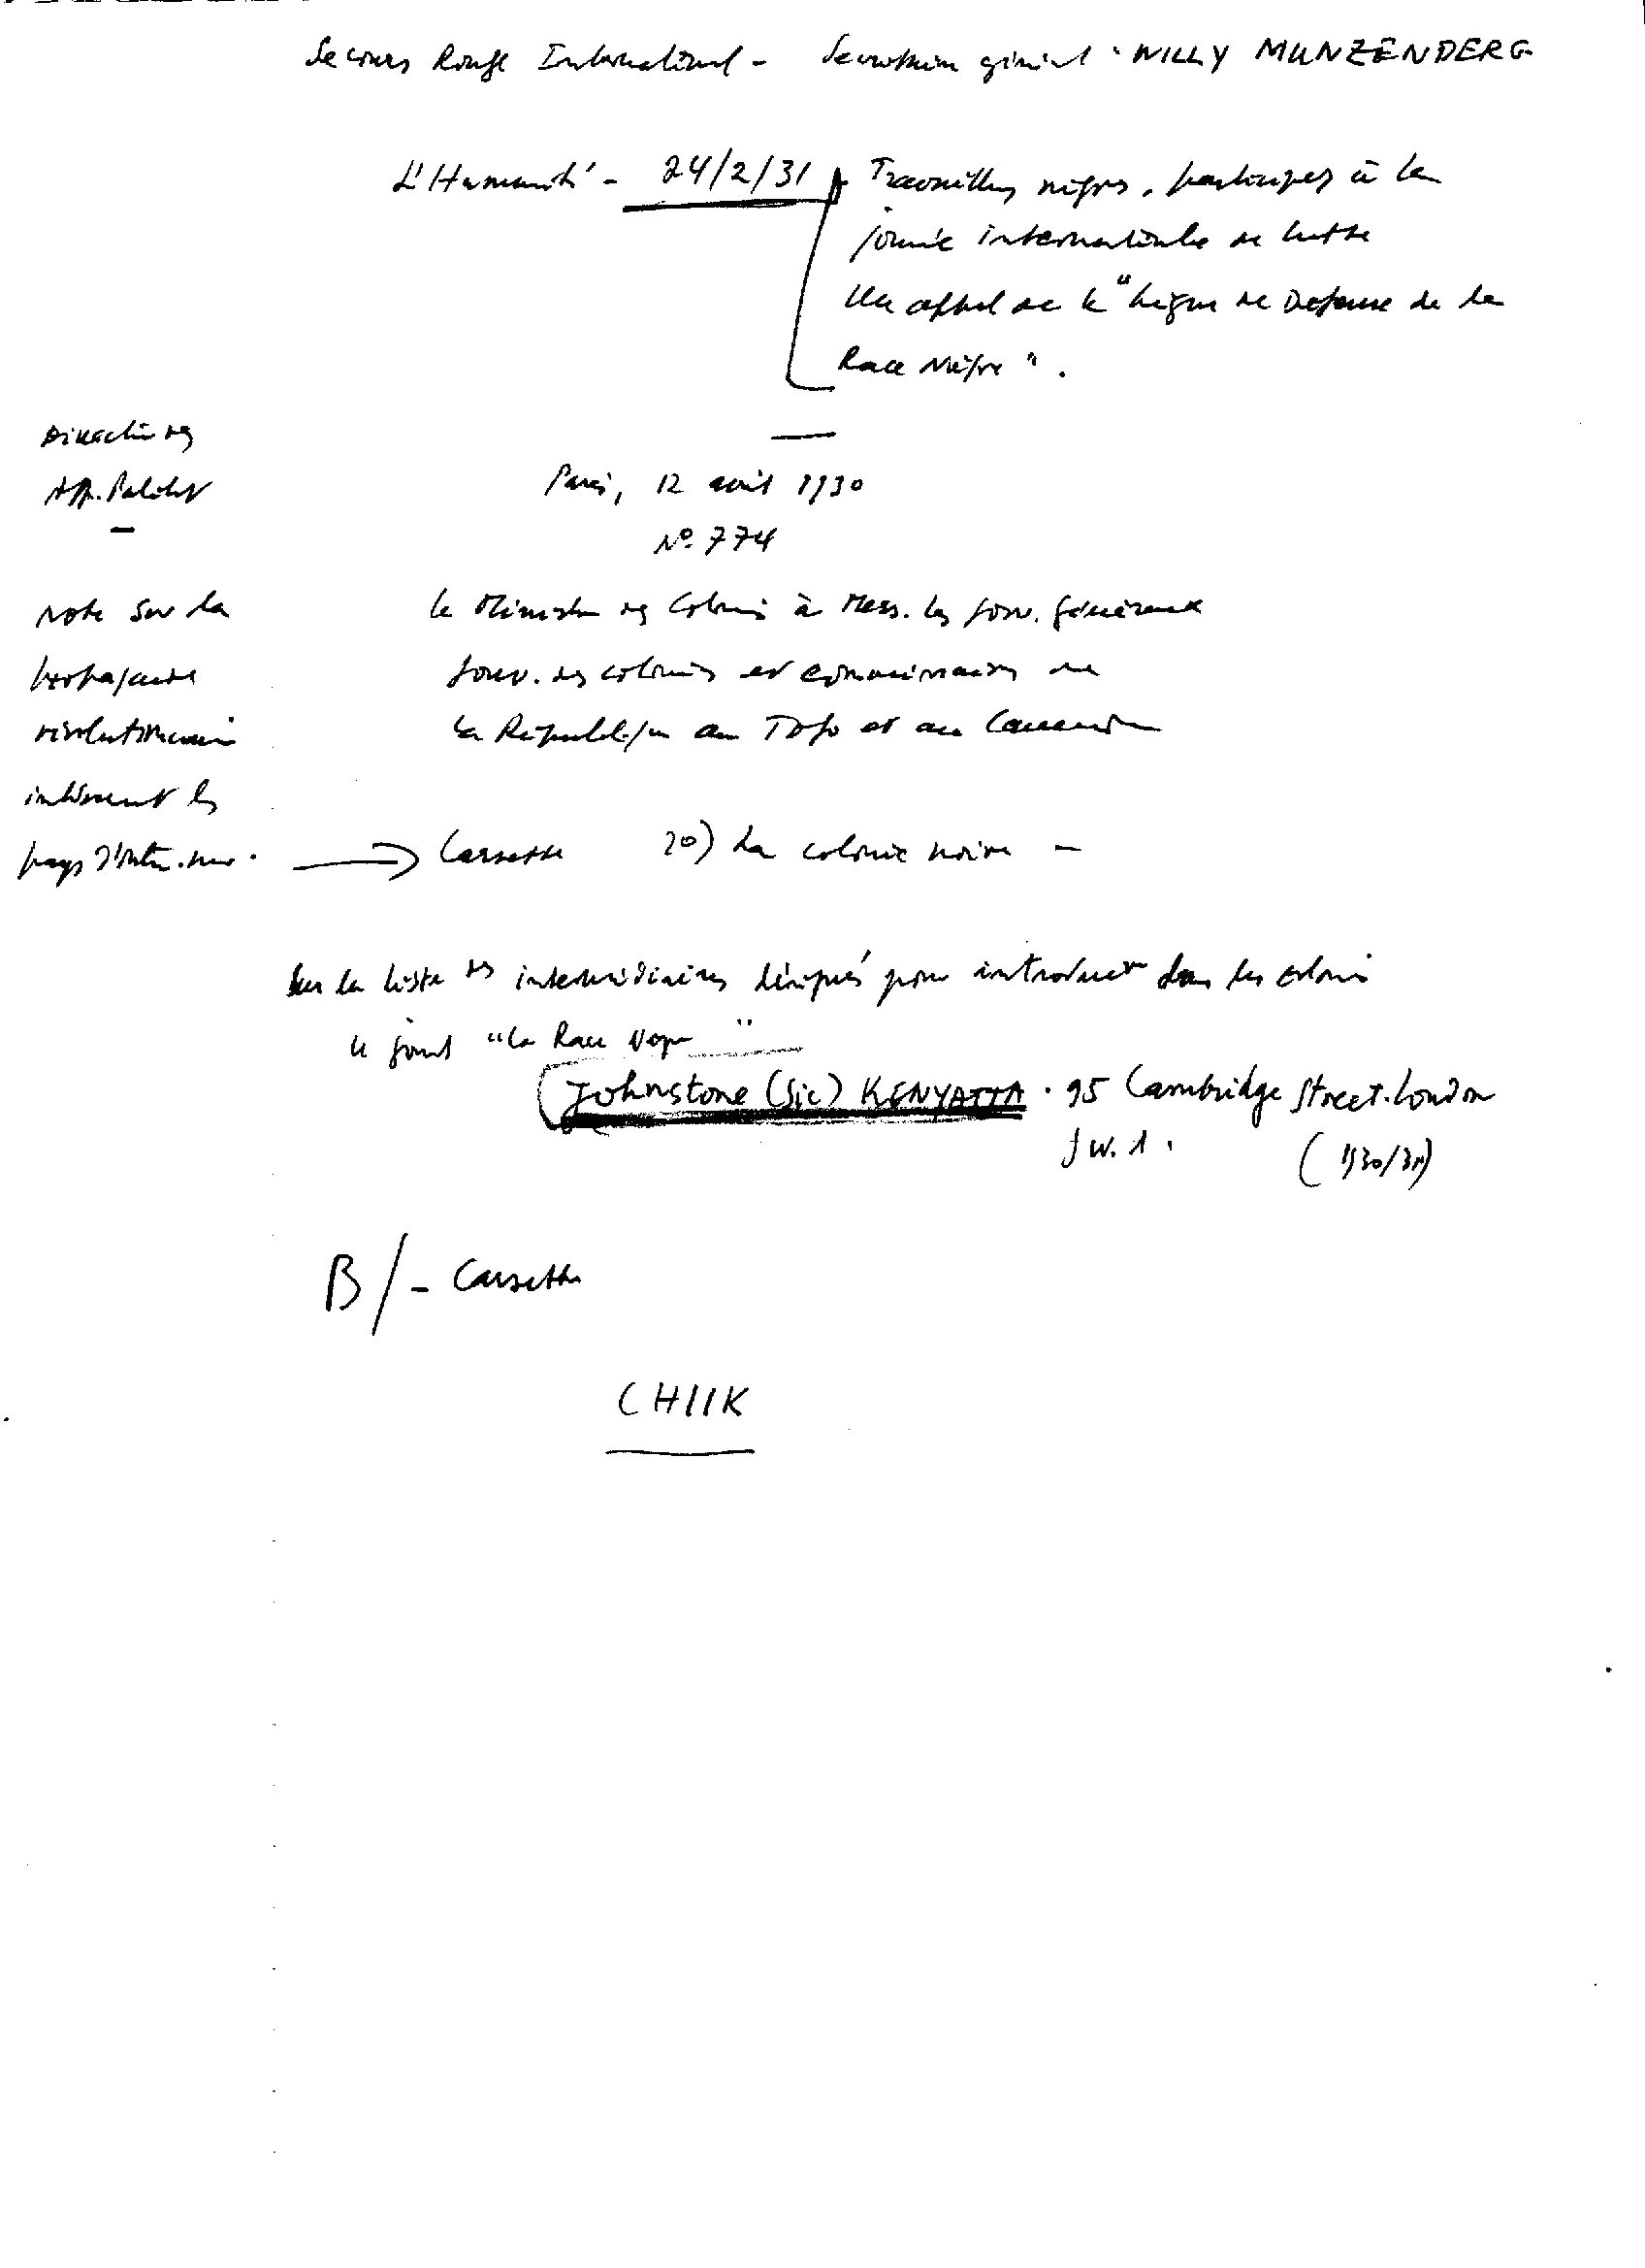 Secours Rouge International - Secrétaire général · WILLY MUNZENDERG
L'Humanité - 24/2/31 - Travailleurs nègres, participez à la
journée internationale de lutte
Un appel de la "Ligue de Défense de la
Race Nègre".
Direction des
Aff. Politiques
Paris, 12 août 1930
N° 774
Note sur la
propagande
révolutionnaire
intéressant les
pays d'Outre-mer.
Le Ministre des Colonies à Mess. les Gouv. Généraux
Gouv. des colonies et commissaires de
la République au Togo et au Cameroun
Cassette 20) La colonie noire -
Sur la liste des intermédiaires désignés pour introduire dans les colonies
le journal "La Race Nègre"
Johnstone (sic) KENYATTA · 95 Cambridge Street. London
S W. 1. (1930/31)
B/- Cassette
CHIIK